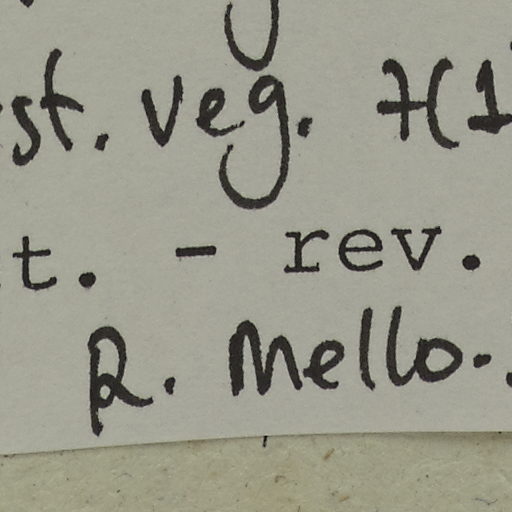 st. veg. 7(1
t. - rev.
R. Mello.